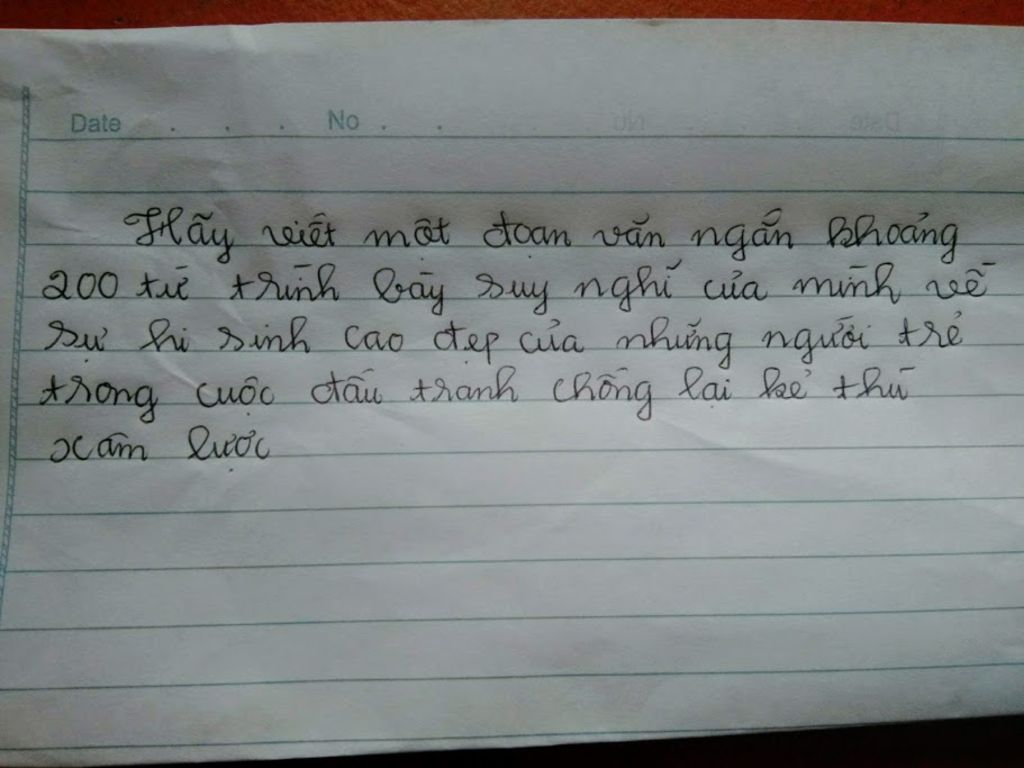 Date . . . No . .
Hãy viết một đoạn văn ngắn khoảng
200 từ trình bày suy nghĩ của mình về
sự hi sinh cao đẹp của những người trẻ
trong cuộc đấu tranh chống lại kẻ thù
xâm lược